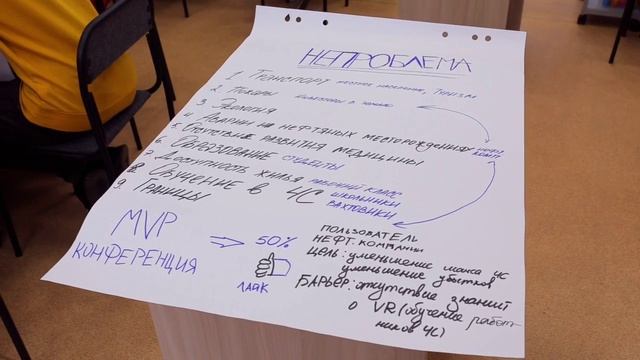 НЕПРОБЛЕМА
1 Транспорт местное население, туристы
2 Погода
3 Экология
4 Аварии на нефтяных месторождениях
5 Отсутствие развития медицины
6 Образование студенты
7 Доступность жилья рабочий класс
8 Обучение в ЧС школьники
вахтовики
9 Границы
MVP
КОНФЕРЕНЦИЯ
⇒ 50%
ЛАЙК
ПОЛЬЗОВАТЕЛЬ
НЕФТ. КОМПАНИИ
ЦЕЛЬ: уменьшение макс ЧС
уменьшение убытков
БАРЬЕР: отсутствие знаний
о VR (обучение работ-
ников ЧС)